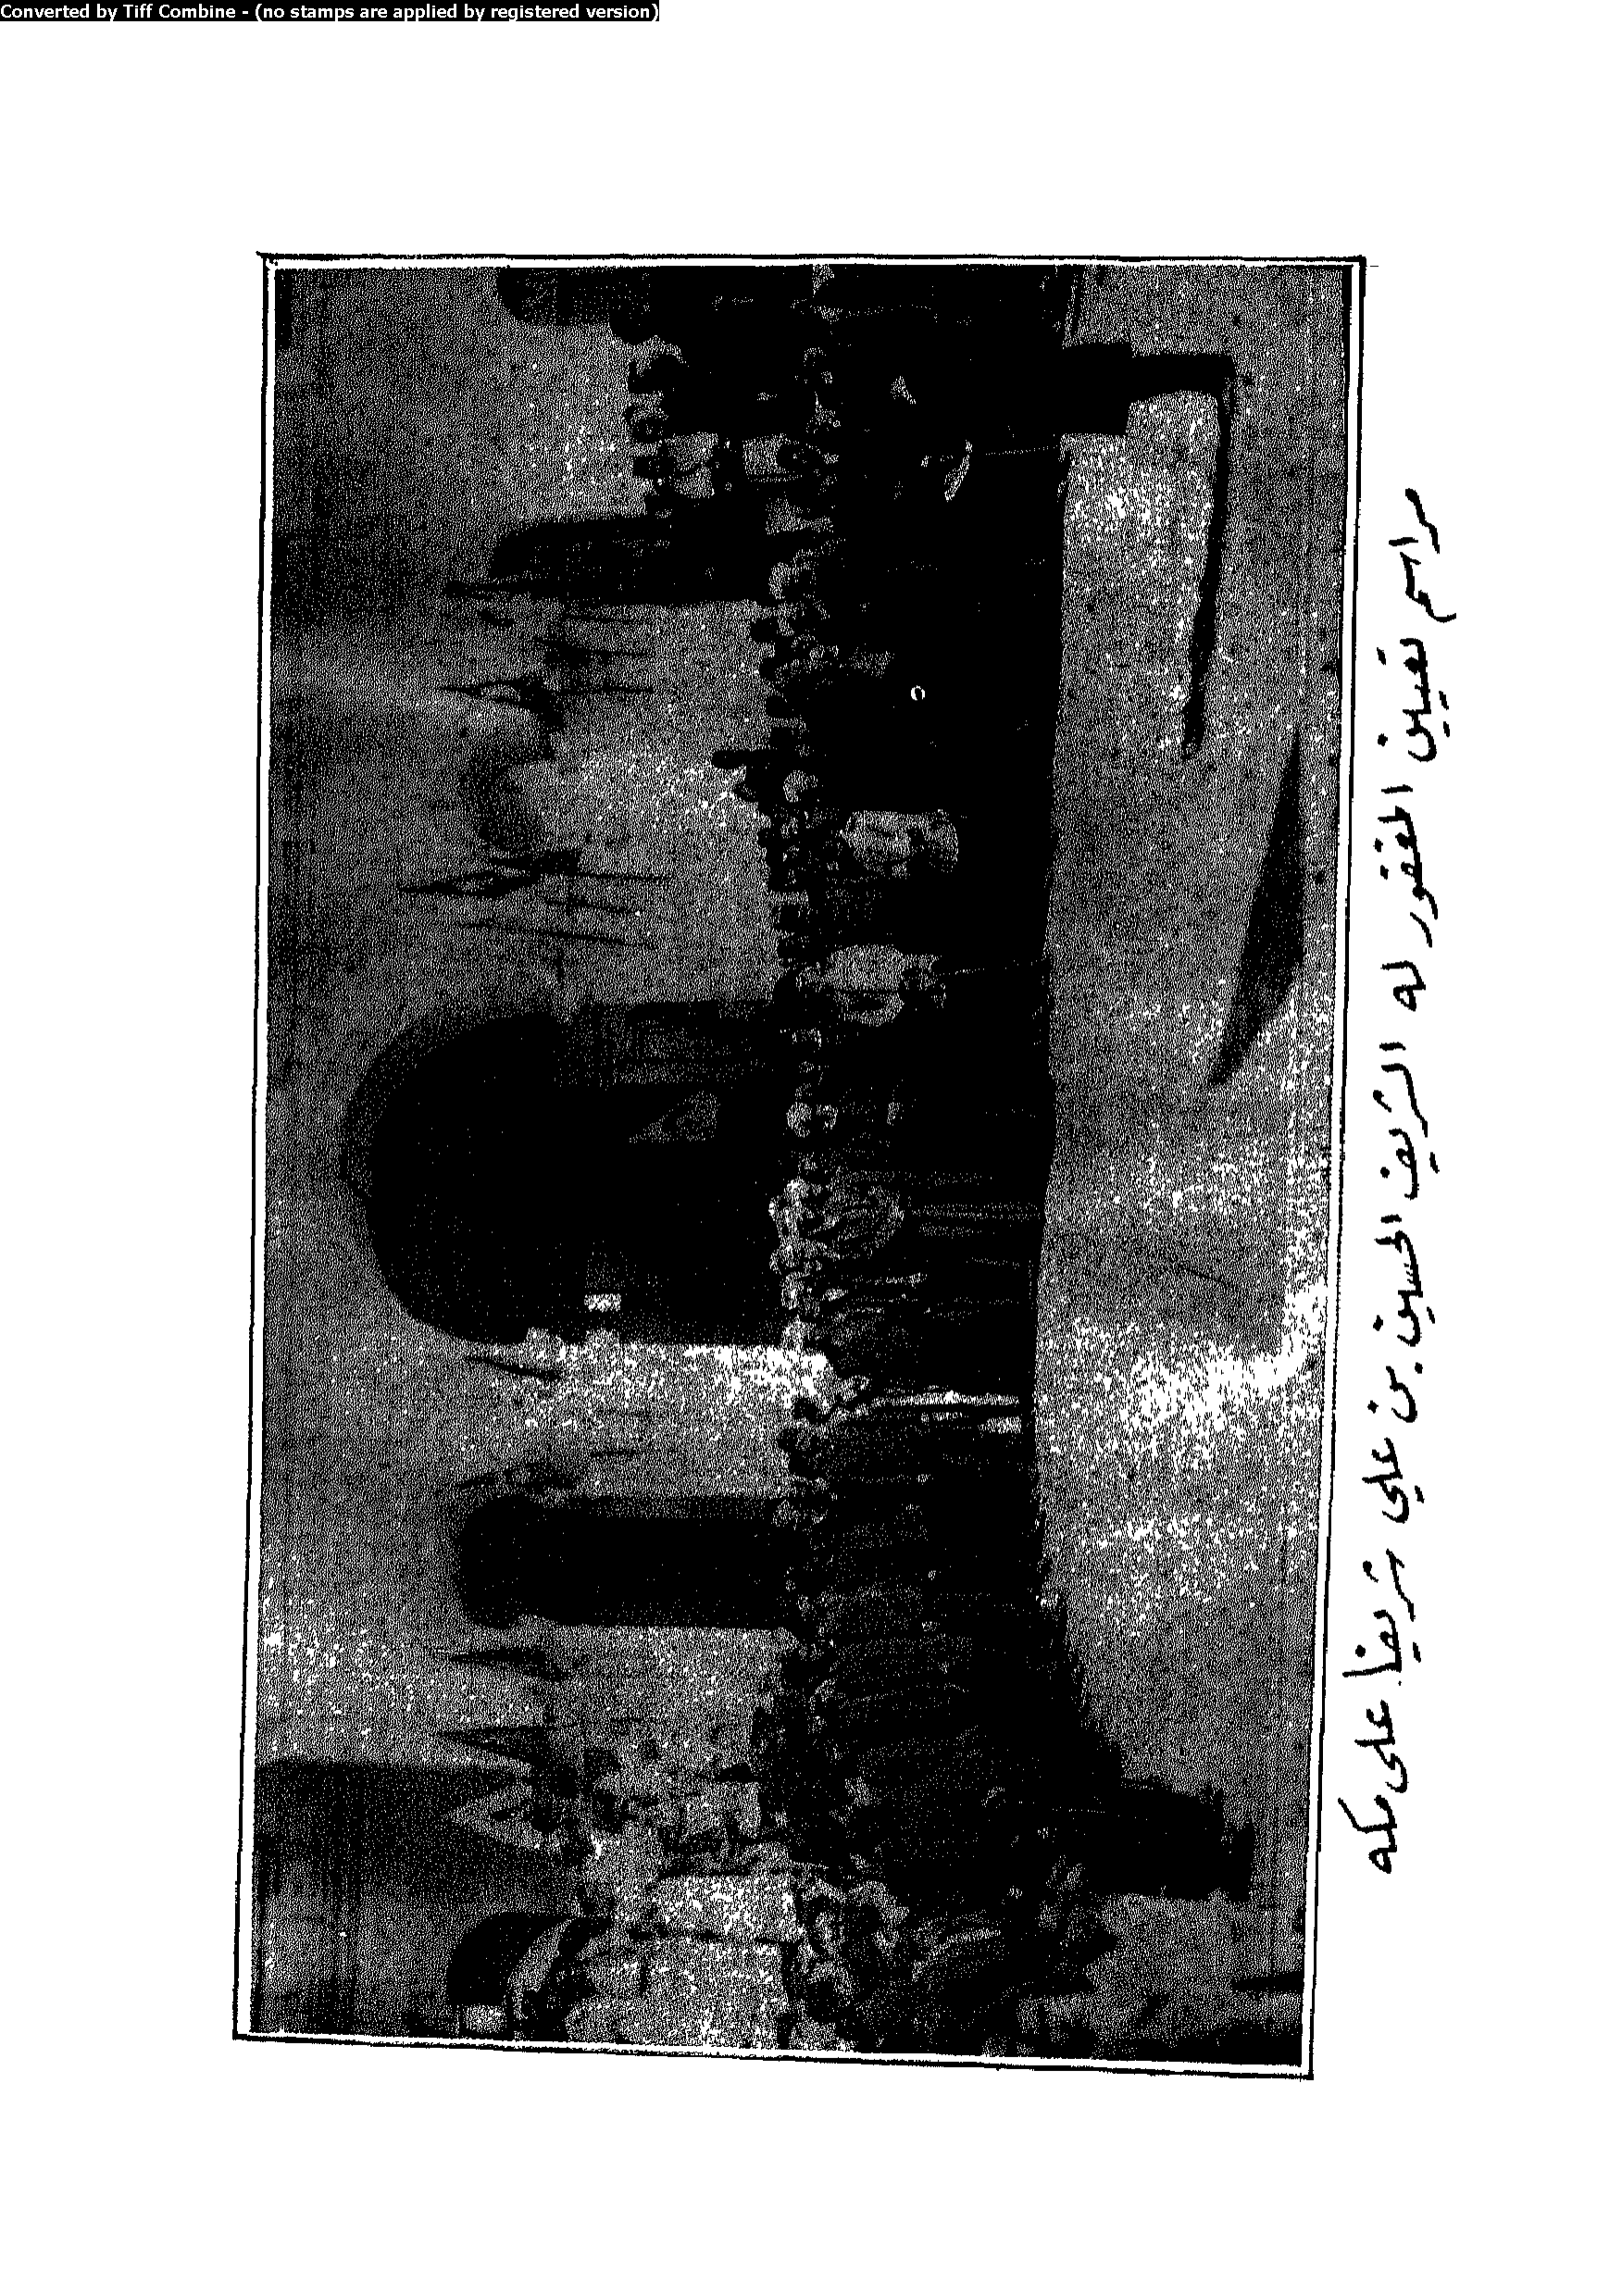 Converted by Tiff Combine - (no stamps are applied by registered version)
مراسم تعيين المغفور له الشريف الحسين بن علي شريفا على مكه